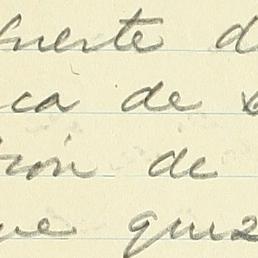 fuerte d
ca de
ión de
ue quiz